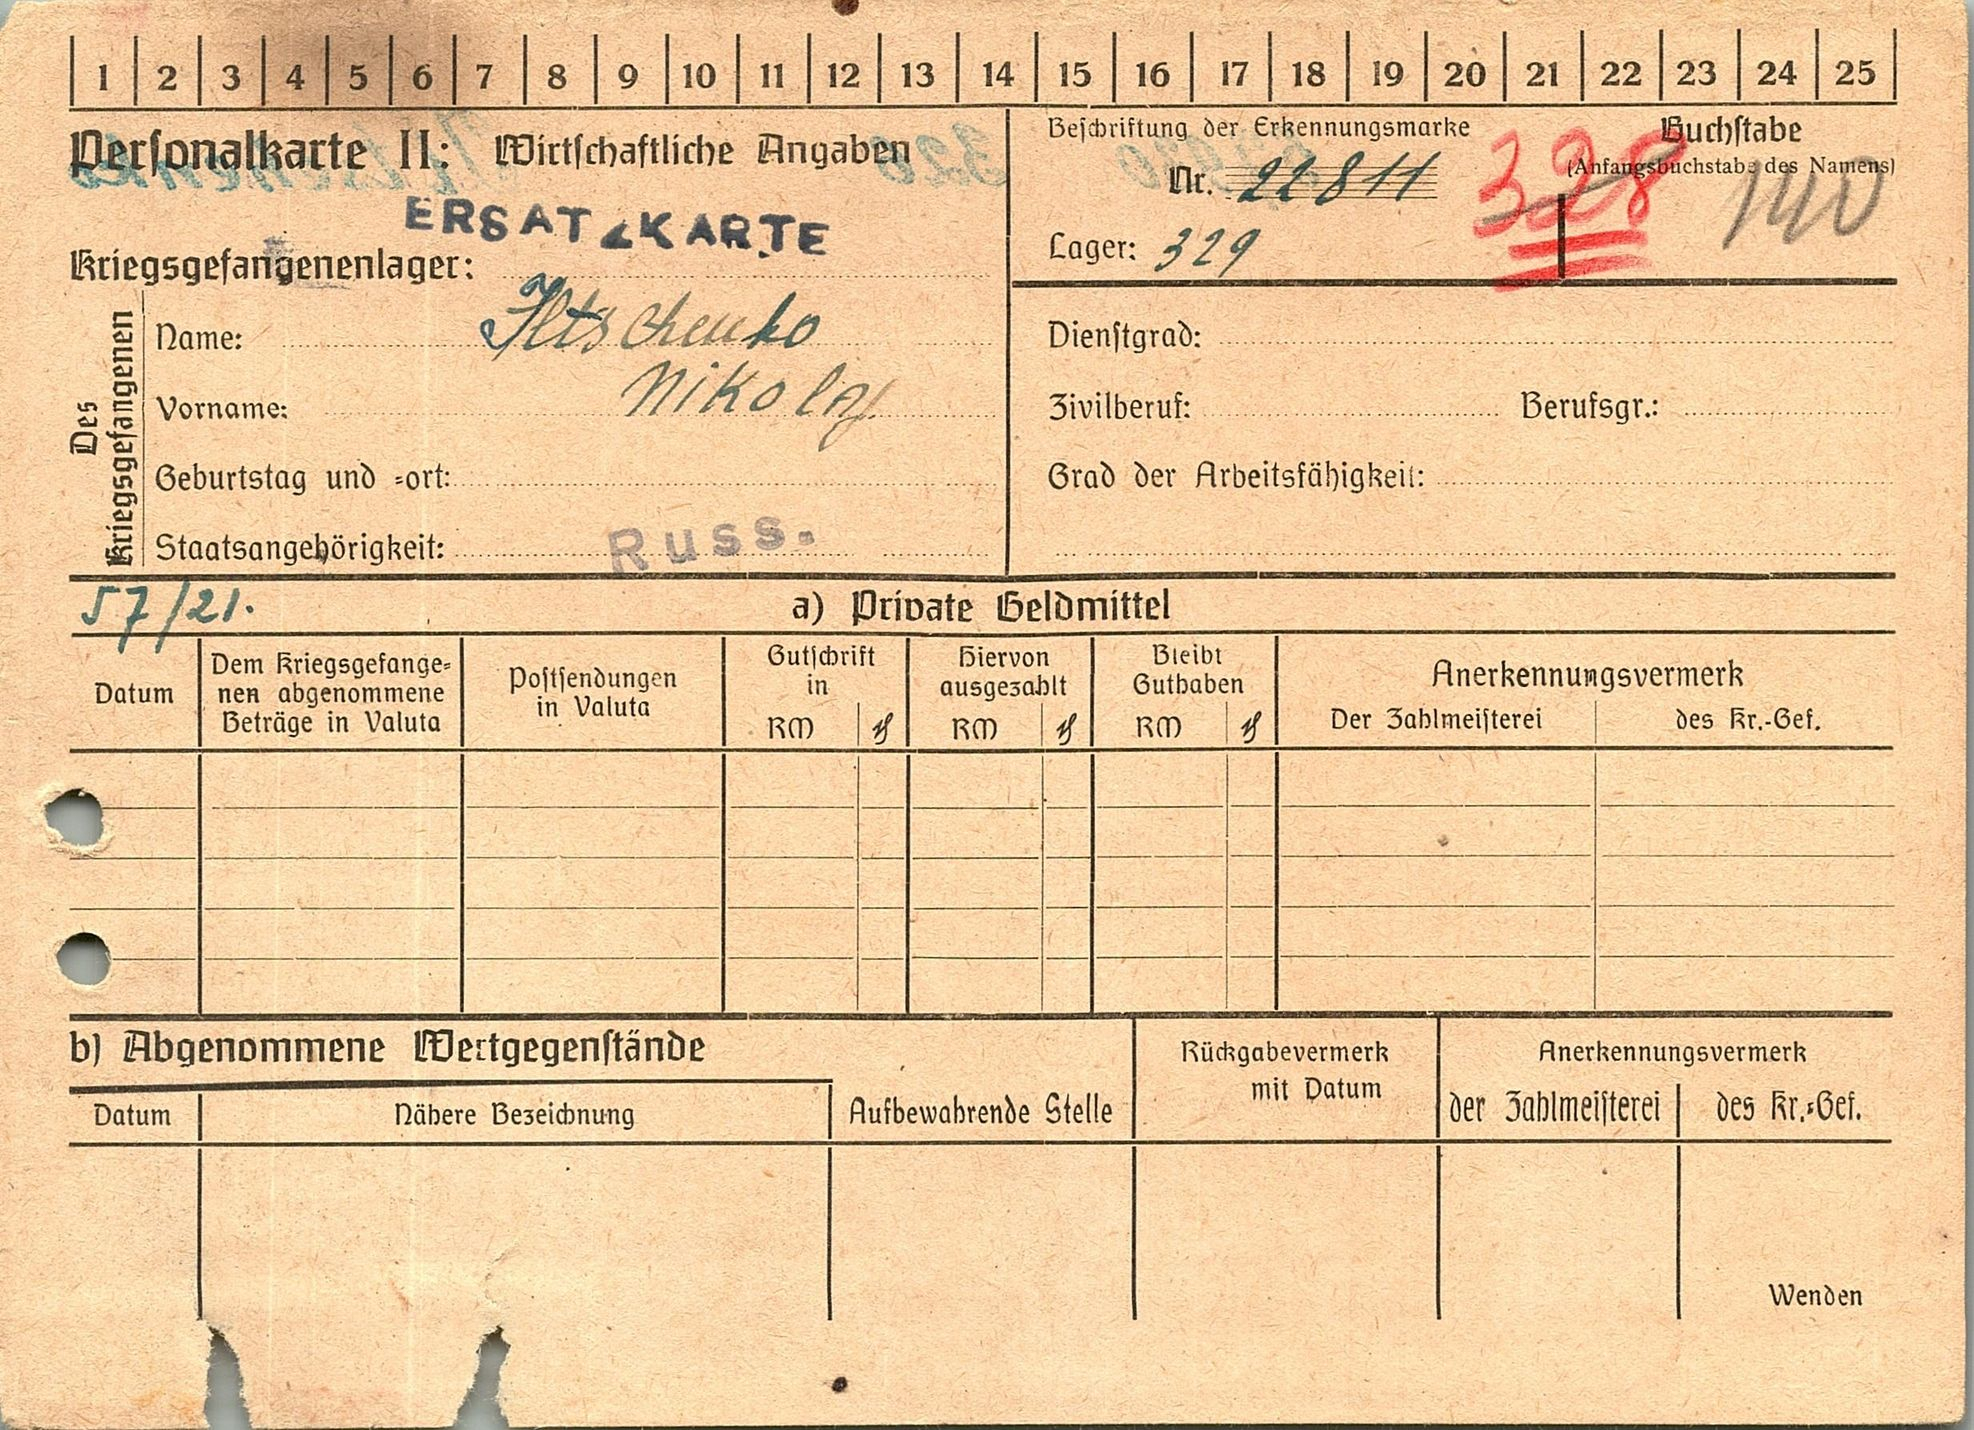 1 2 3 4 5 6 7 8 9 10 11 12 13 14 15 16 17 18 19 20 21 22 23 24 25
Personalkarte II: Wirtschaftliche Angaben
ERSATZKARTE
Kriegsgefangenenlager:
Beschriftung der Erkennungsmarke
Nr. 22811
Lager: 329
328
Buchstabe
(Anfangsbuchstabe des Namens)
140
Des Kriegsgefangenen
Name: Iltschenko
Vorname: Nikolay
Geburtstag und =ort:
Staatsangehörigkeit: Russ.
Dienstgrad:
Zivilberuf: Berufsgr.:
Grad der Arbeitsfähigkeit:
57/21.
a) Private Geldmittel
Datum
Dem Kriegsgefange=
nen abgenommene
Beträge in Valuta
Postsendungen
in Valuta
Gutschrift
in
RM ₰
Hiervon
ausgezahlt
RM ₰
Bleibt
Guthaben
RM ₰
Anerkennungsvermerk
Der Zahlmeisterei des Kr.-Gef.
b) Abgenommene Wertgegenstände
Datum Nähere Bezeichnung Aufbewahrende Stelle
Rückgabevermerk
mit Datum
Anerkennungsvermerk
der Zahlmeisterei des Kr.=Gef.
Wenden